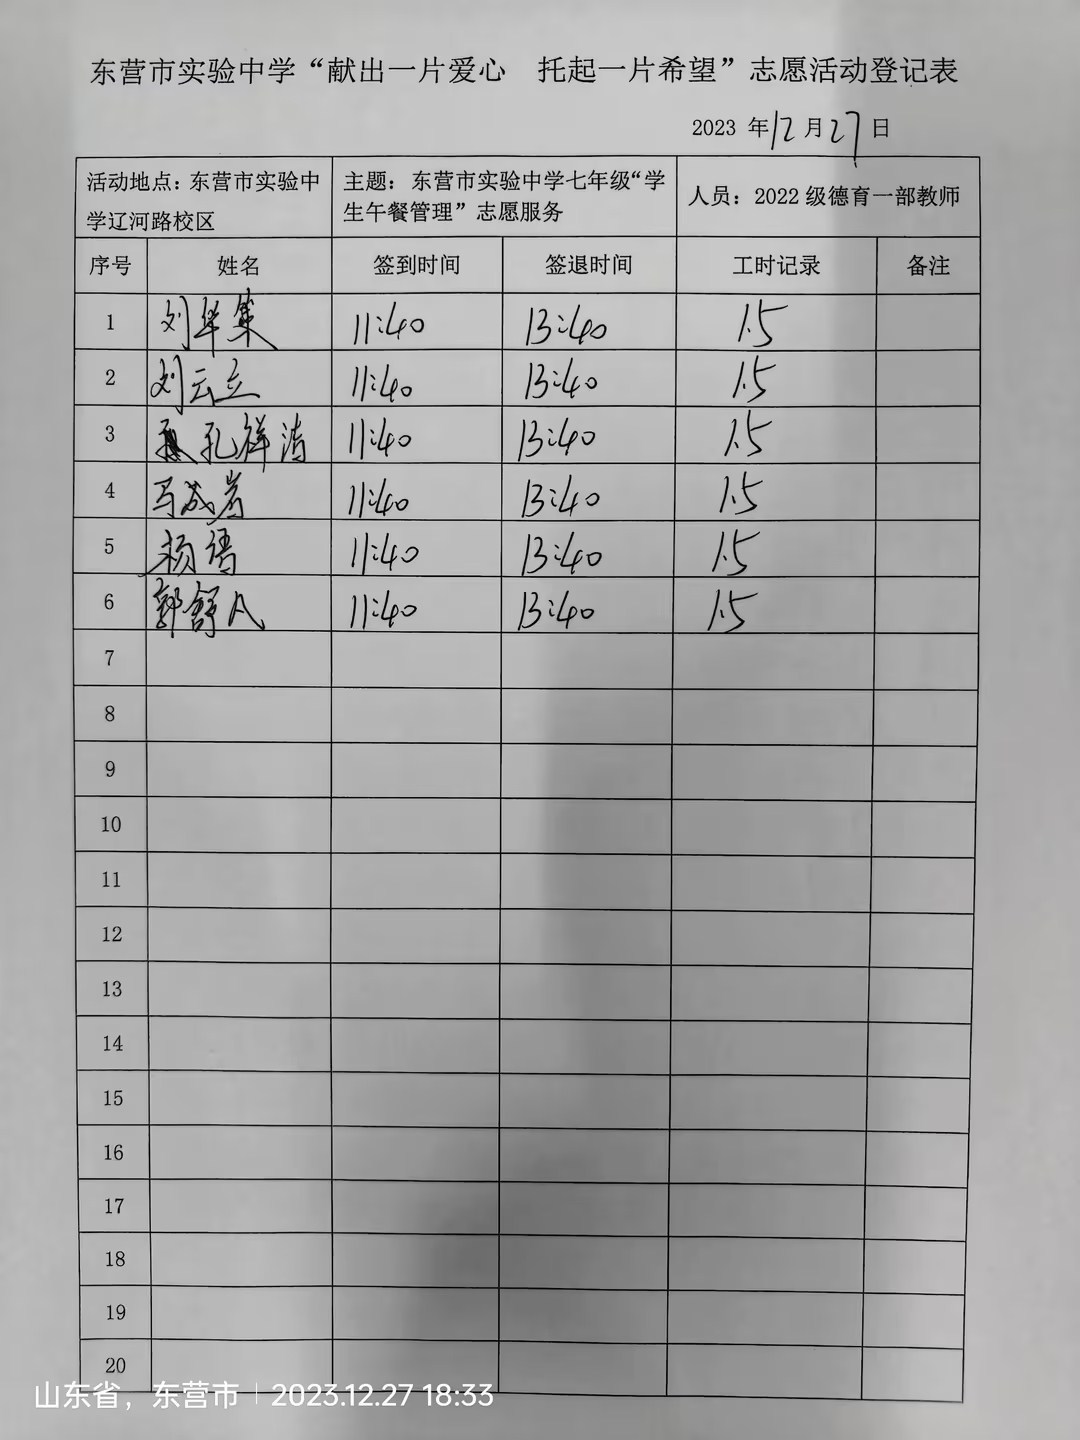 东营市实验中学“献出一片爱心 托起一片希望”志愿活动登记表
2023 年12月27日
活动地点：东营市实验中学辽河路校区 主题：东营市实验中学七年级“学生午餐管理”志愿服务 人员：2022 级德育一部教师
序号 姓名 签到时间 签退时间 工时记录 备注
1 刘华集 11:40 13:40 1.5
2 刘云立 11:40 13:40 1.5
3 孔祥清 11:40 13:40 1.5
4 马成岩 11:40 13:40 1.5
5 杨 11:40 13:40 1.5
6 郭舒凡 11:40 13:40 1.5
7
8
9
10
11
12
13
14
15
16
17
18
19
20
山东省，东营市 | 2023.12.27 18:33